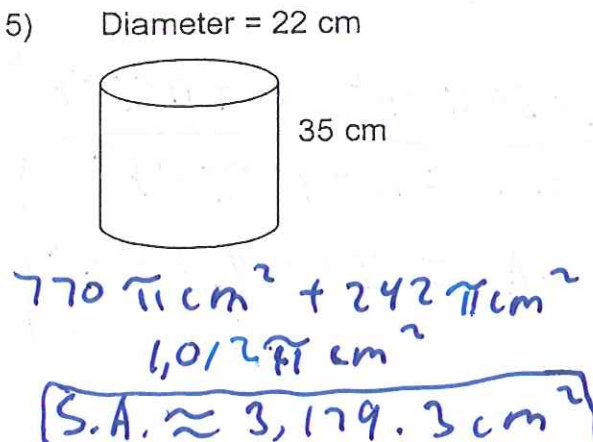 5) Diameter = 22 cm
35 cm
770 π cm² + 242 π cm²
1,012 π cm²
S.A. ≈ 3,179.3 cm²